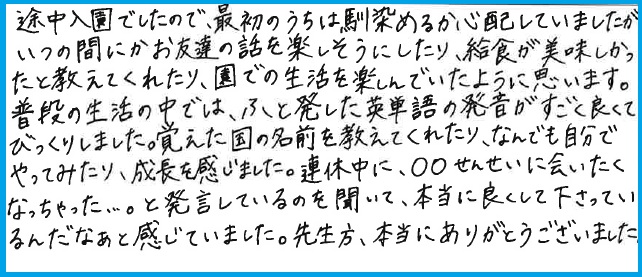 途中入園でしたので、最初のうちは馴染めるか心配していましたが
いつの間にかお友達の話を楽しそうにしたり、給食が美味しかっ
たと教えてくれたり、園での生活を楽しんでいたように思います。
普段の生活の中では、ふと発した英単語の発音がすごく良くて
びっくりしました。覚えた国の名前を教えてくれたり、なんでも自分で
やってみたり、成長を感じました。連休中に、〇〇せんせいに会いたく
なっちゃった…。と発言しているのを聞いて、本当に良くして下さってい
るんだなぁと感じていました。先生方、本当にありがとうございました